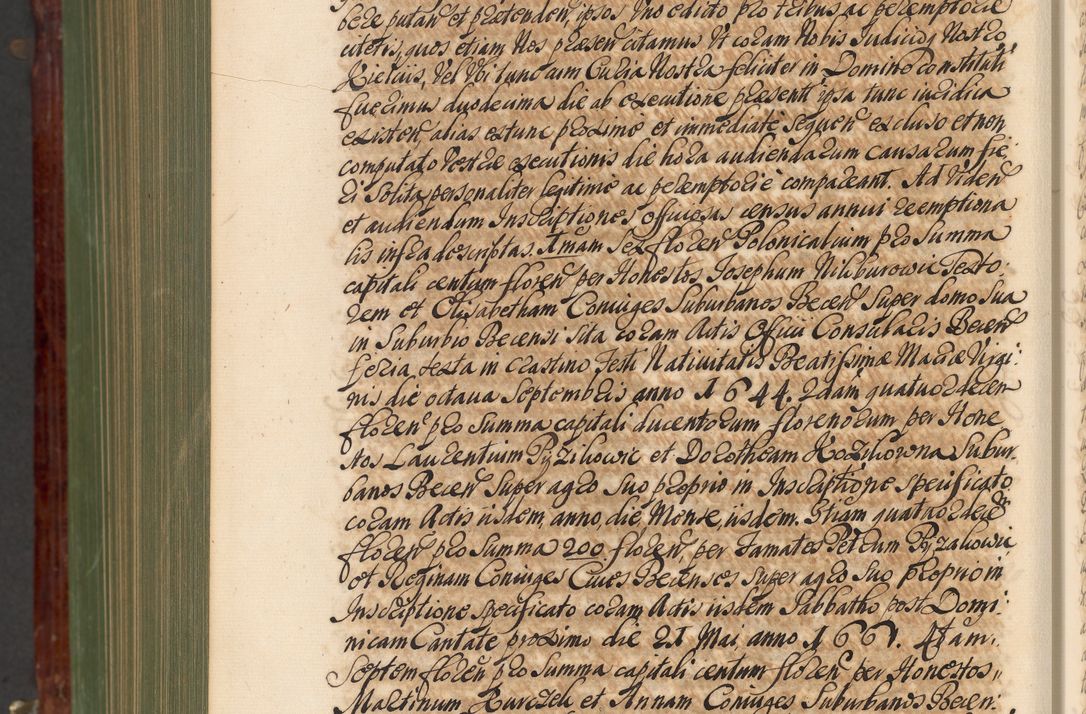 bere putan et prætenden, ipsos Uno edicto pro tribus ac peremptorie
citetis, quos etiam Nos præsen citamus Ut coram Nobis Judicioq Nostro
Kielciis, Vel Ubi tunc cum Curia Nostra feliciter in Domino constituti
fuerimus duodecima die ab executione præsenti ipsa tunc iuridica
existen, alias extunc proxime et immediate sequen excluso et non
computato Vestræ executionis die hora audiendarum causarum fie,
ri solita personaliter legitime ac peremptorie compareant. Ad Viden
et audiendum Inscriptiones officiosas census annui reemptiona
lis infra descriptas. Imam Sex floren Polonicalium pro Summa
capitali centum floren per Honestos Josephum Niliburowic Texto:
rem et Elisabetham Coniuges Suburbanos Becen Super domo Sua
in Suburbio Becensi Sita coram Actis Officii Consularis Becen
feria sexta in crastino Festi Nativitatis Beatissimæ Mariæ Virgi:
nis die octava Septembris anno 1644. 2dam quatuordecen
floren pro Summa capitali ducentorum florenorum per Hone
stos Laurentium Pyziliowic et Dorotheam Koziliowna Subur.
banos Becen Super agro Suo proprio in Inscriptione specificato
coram Actis iisdem, anno, die, Mense, iisdem. 3tiam quatuordecen
floren pro Summa 200 floren, per Famates Petrum Pyzaliowic
et Reginam Coniuges Cives Becenses super agro Suo proprio in
Inscriptione specificato coram Actis iisdem Sabbatho post Domi:
nicam Cantate proximo die 21 Mai anno 1661. 4tam.
Septem floren pro Summa capitali centum floren per Honestos,,
Martinum Kurczek et Annam Coniuges Suburbanos Becen: